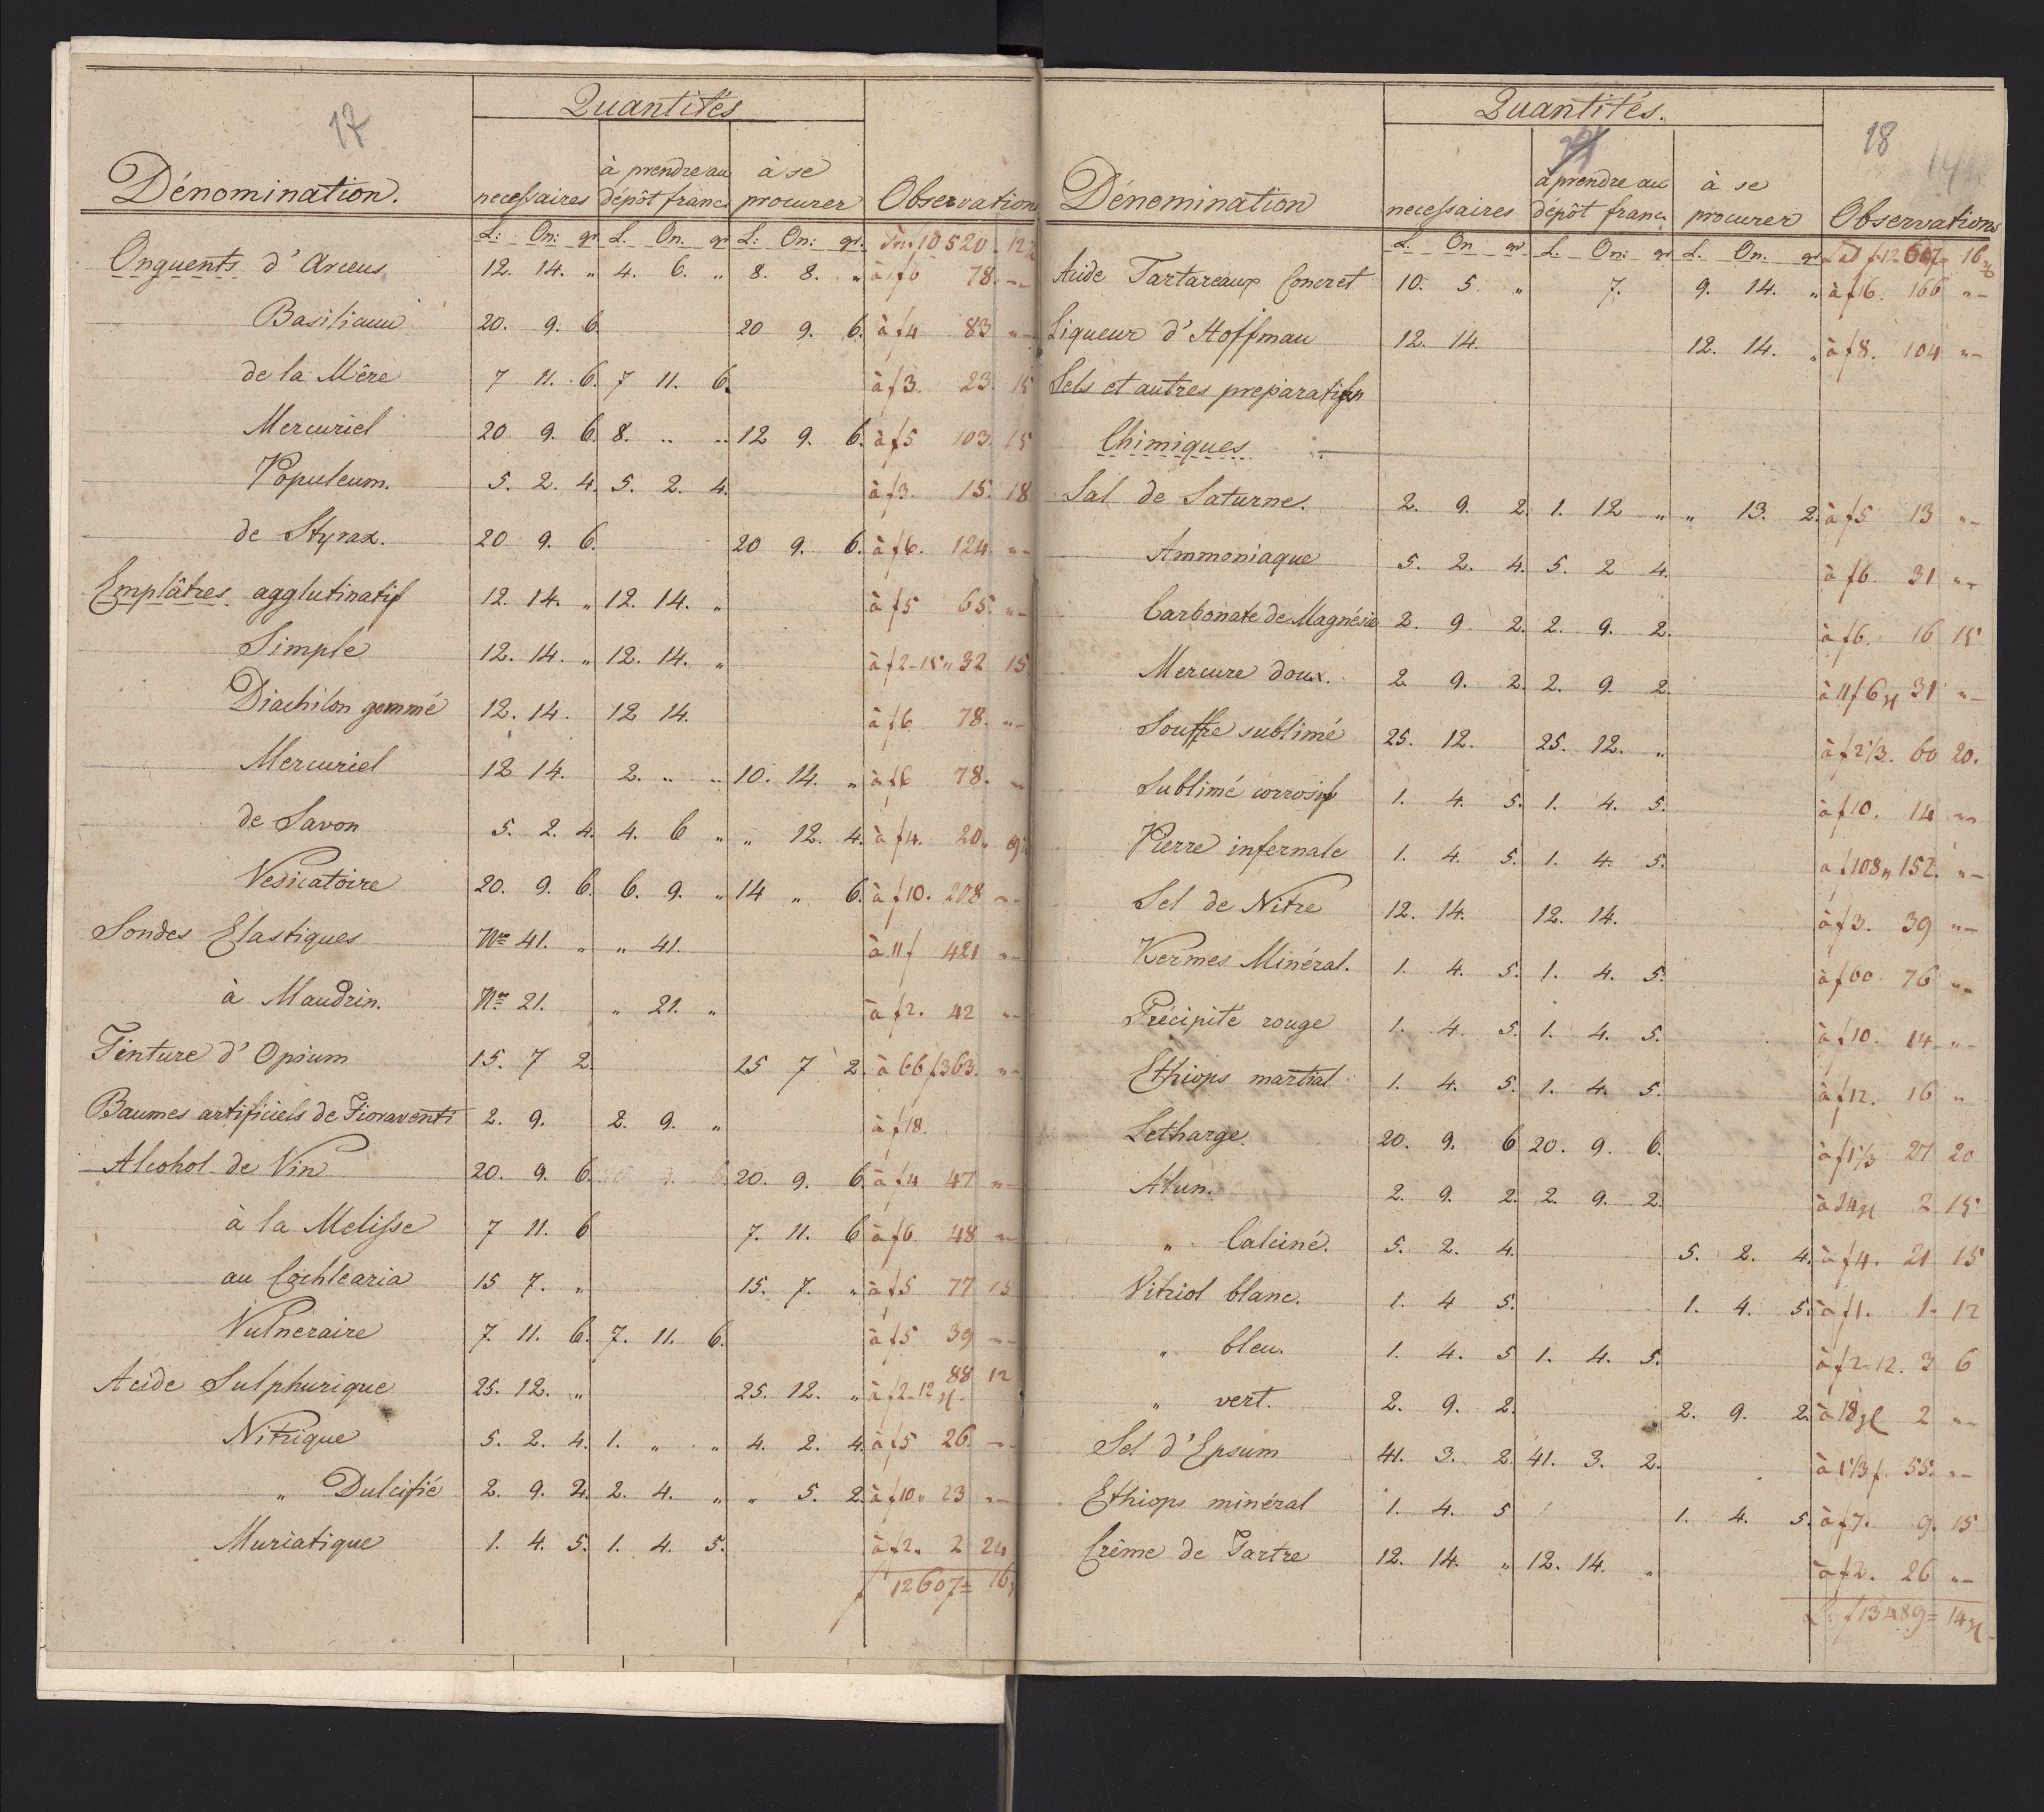 17
Quantités
Dénomination. necessaires à prendre au dépôt franc. à se procurer Observations
L: On: gr. L. On. gr L: On: gr. 10520. 12
Onguents d'Arceus 12. 14. " 4. 6. " 8. 8. " à f6 78. "
Basilicum 20. 9. 6. 20 9. 6. à f4 83 "
de la Mère 7 11. 6. 7 11. 6. à f3. 23. 15
Mercuriel 20 9. 6. 8. " " 12 9. 6. à f5 103. 15
Populeum. 5. 2. 4. 5. 2. 4. à f3. 15. 18
de Styrax. 20 9. 6. 20 9. 6. à f6. 124. "
Emplâtres agglutinatif 12. 14. " 12. 14. " à f5 65. "
Simple 12. 14. " 12. 14. " à f2-15 " 32 15
Diachilon gommé 12. 14. 12 14. à f6 78. "
Mercuriel 12 14. 2. " " 10. 14. " à f6 78. "
de Savon 5. 2. 4. 4. 6 " " 12. 4. à f4. 20.
Vesicatoire 20. 9. 6. 6. 9. " 14 " 6. à f10. 208 "
Sondes Elastiques Nro 41. " " 41. à 11f 421 "
à Maudrin. Nro 21. " 21. " à f2. 42 "
Tinture d'Opium 15. 7 2. 25 7 2. à 66 f363. "
Baumes artificiels de Fioraventi 2. 9. 2. 9. " à f18.
Alcohol de Vin 20. 9. 6. 20. 9. 6. à f4 47 "
à la Melisse 7 11. 6 7. 11. 6 à f6. 48 "
au Cochlearia 15 7. " 15. 7. " à f5 77 15
Vulneraire 7. 11. 6. 7. 11. 6. à f5 39 "
Acide Sulphurique 25. 12. " 25. 12. " à f2-12 88 12
Nitrique 5. 2. 4. 1. " " 4. 2. 4. à f5 26. "
" Dulcifié 2. 9. 2. 2. 4. " " 5. 2. à f10 " 23 "
Muriatique 1. 4. 5. 1. 4. 5. à f2. 2 24
f 12607= 16
18
Quantités.
Dénomination necessaires à prendre au dépôt franc. à se procurer Observations
L. On gr. L. On: gr L. On. gr f12607= 16
Acide Tartareaux Concret 10. 5. " 7. 9. 14. " à f16. 166 "
Liqueur d'Hoffman 12. 14. 12. 14. " à f8. 104 "
Sels et autres preparation
Chimiques.
Sal de Saturne. 2. 9. 2. 1. 12 " " 13. 2. à f5 13 "
Ammoniaque 5. 2. 4. 5. 2 4. à f6. 31 "
Carbonate de Magnésie 2. 9 2. 2. 9. 2. à f6. 16 15
Mercure doux. 2. 9. 2. 2. 9. 2. à 11f6 31 "
Souffre sublimé 25. 12. 25. 12. " à f2 1/3. 60 20.
Sublimé corrosif 1. 4. 5. 1. 4. 5. à f10. 14 "
Pierre infernale 1. 4. 5. 1. 4. 5. a f108 " 152. "
Sel de Nitre 12. 14. 12. 14. à f3. 39 "
Kermes Minéral. 1. 4. 5. 1. 4. 5. à f60. 76 "
Précipité rouge 1. 4. 5. 1. 4. 5. à f10. 14 "
Ethiops martial 1. 4. 5. 1. 4. 5. à f12. 16 "
Letharge. 20. 9. 6 20. 9. 6. à f1 1/3 27 20
Alun. 2. 9. 2. 2. 9. 2. à 24 2 15
" Calciné. 5. 2. 4. 5. 2. 4. à f4. 21 15
Vitriol blanc. 1. 4 5. 1. 4. 5. à f1. 1- 12
" bleu. 1. 4. 5 1. 4. 5. à f2-12. 3 6
" vert. 2. 9. 2. 2. 9. 2. à 18 2 "
Sel d'Epsum 41. 3. 2. 41. 3. 2. à 1 1/3 f. 55. "
Ethiops minéral 1. 4. 5 1. 4. 5. à f7. 9. 15
Crême de Tartre 12. 14. " 12. 14. " à f2. 26 "
f13489= 14